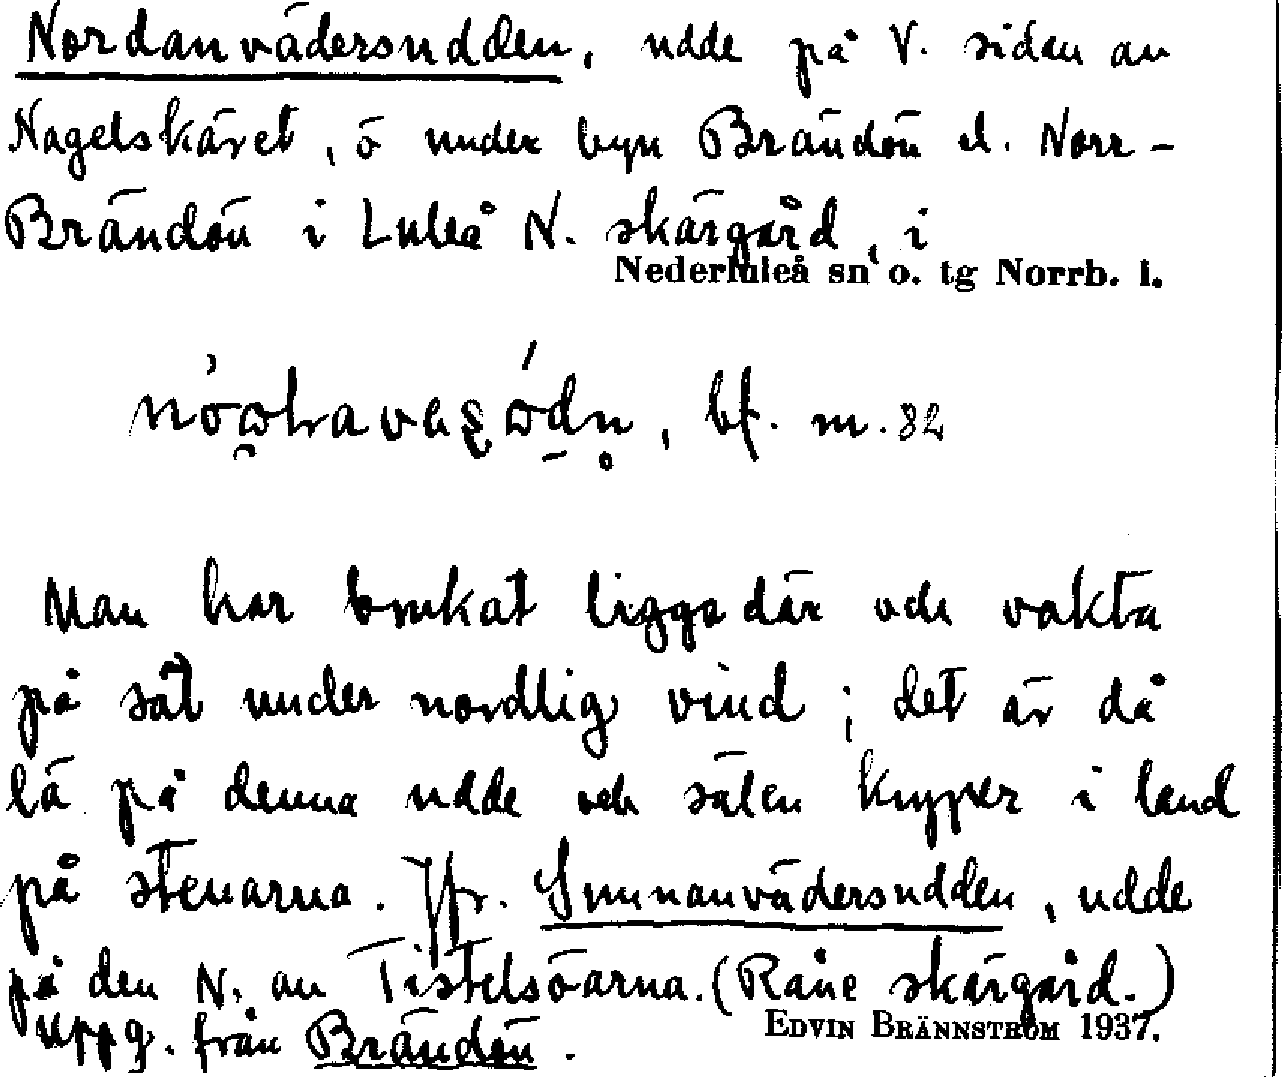 Nordanvädersudden, udde på V. sidan av
Nagelskäret, ö under byn Brändön el. Norr-
Brändön i Luleå N. skärgård, i
Nederluleå sn o. tg Norrb. l.
bf. m. 82
Man har brukat ligga där och vakta
på säl under nordlig vind; det är då
lä på denna udde och sälen kryper i land
på stenarna. Jfr. Sunnanvädersudden, udde
på den N. av Tistelsöarna. (Råne skärgård.)
Uppg. från Brändön.
EDVIN BRÄNNSTRÖM 1937.